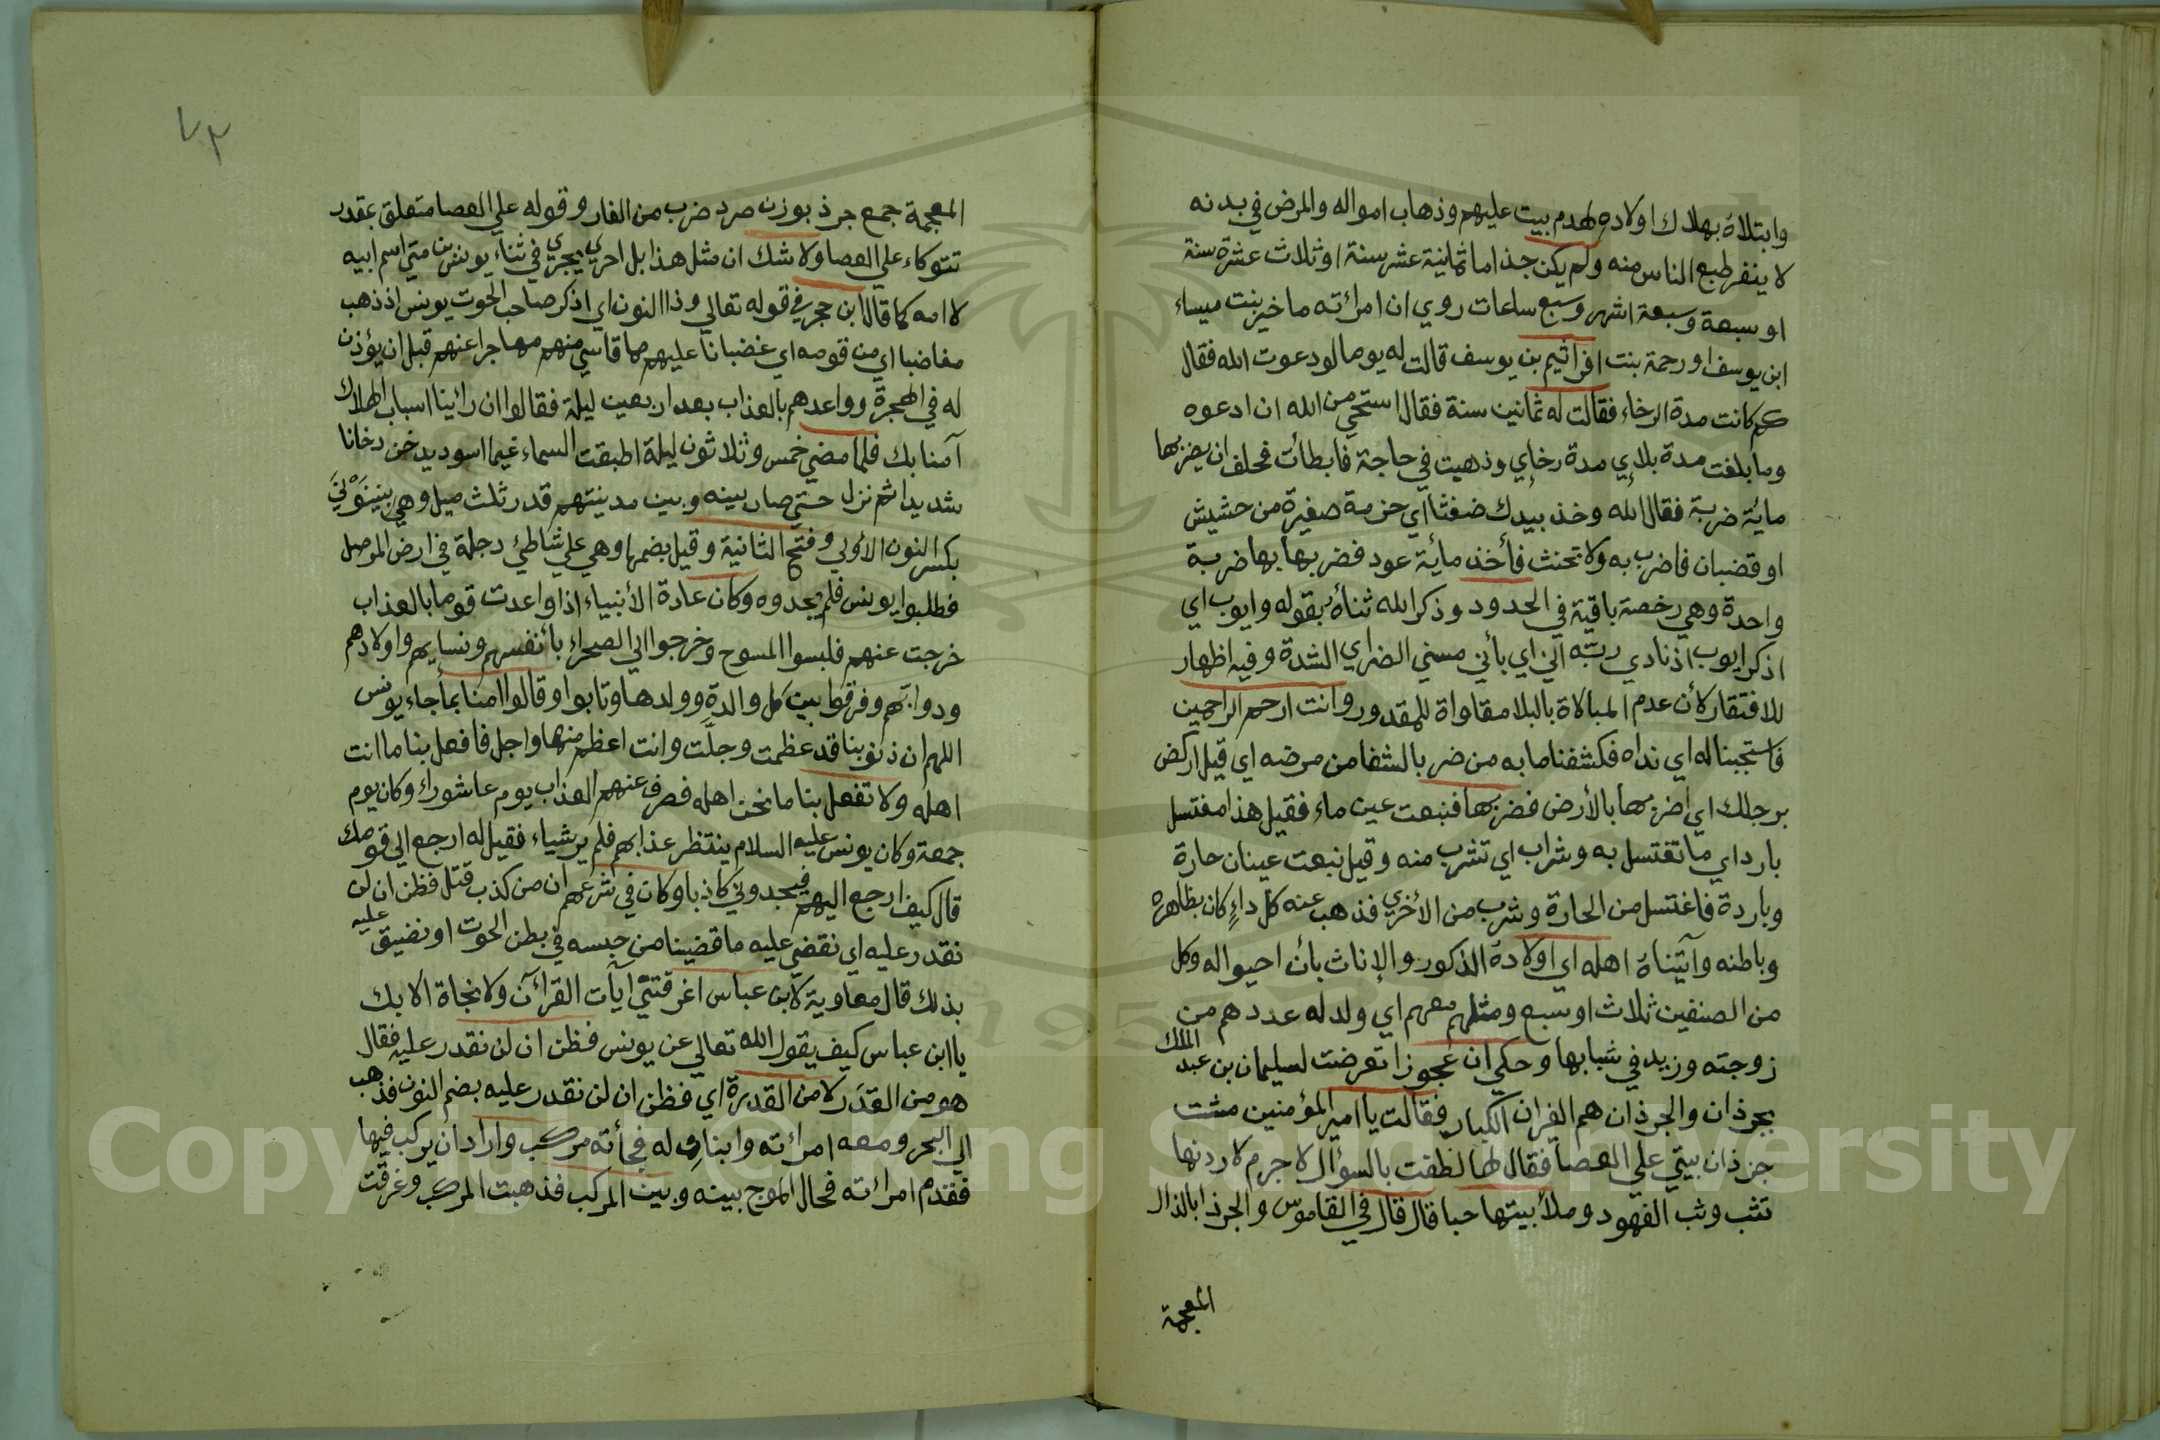 وابتلاه بهلاك اولاده بهدم بيت عليهم وذهاب امواله والمرض في بدنه
لا ينفر طبع الناس منه ولم يكن جذاما ثمانية عشر سنة او ثلاث عشرة سنة
او سبعة وسبعة اشهر وسبع ساعات روي ان امرائته ماخير بنت ميساء
ابن يوسف او رحمة بنت افراثيم بن يوسف قالت له يوما لو دعوت الله فقال
كم كانت مدة الرخاء فقالت له ثمانين سنة فقال استحي من الله ان ادعوه
وما بلغت مدة بلاءي مدة رخاءي وذهبت في حاجة فابطأت فحلف ان يضربها
ماية ضربة فقال الله وخذ بيدك ضغثا اي حزمة صغيرة من حشيش
او قضبان فاضرب به ولا تحنث فأخذ مائة عود فضربها بها ضربة
واحدة وهي رخصة باقية في الحدود وذكر الله ثناءه بقوله وايوب اي
اذكر ايوب اذ نادي ربه اني اي بأني مسني الضر اي الشدة وفيه اظهار
للافتقار لأن عدم المبالاة بالبلا مقاواة للمقدور وانت ارحم الراحمين
فاستجبنا له اي نداه فكشفنا ما به من ضر بالشفا من مرضه اي قيل اركض
برجلك اي اضرب بها بالأرض فضربها فنبعت عين ماء فقيل هذا مغتسل
بارد اي ما تغتسل به وشراب اي تشرب منه وقيل نبعت عينان حارة
وباردة فاغتسل من الحارة وشرب من الأخري فذهب عنه كل داء كان بظاهره
وباطنه وآتيناه اهله اي اولاده الذكور والإناث بأن احيوا له وكل
من الصنفين ثلاث او سبع ومثلهم معهم اي ولد له عددهم من
زوجته وزيد في شبابها وحكي ان عجوزا تعرضت لسليمان بن عبد الملك
بجرذان والجرذان هم الفران الكبار فقالت يا امير المؤمنين مشت
جرذان بيتي علي العصا فقال لها لطفت بالسؤال لا جرم لاردنها
تثب وثب الفهود وملأ بيتها حبا قال قال في القاموس والجرذ بالذال
المعجمة
٧٣
المعجمة جمع جرذ بوزن صرد ضرب من الفار وقوله علي العصا متعلق بمقدر
تتوكاء علي العصا ولا شك ان مثل هذا بل احري يجري في ثناء يونس بن متي اسم ابيه
لا امه كما قال ابن حجر في قوله تعالي وذا النون اي اذكر صاحب الحوت يونس اذ ذهب
مغاضبا اي من قومه اي غضبانا عليهم مما قاسي منهم مهاجرا عنهم قبل ان يؤذن
له في الهجرة وواعدهم بالعذاب بعد اربعين ليلة فقالوا ان رائينا اسباب الهلاك
آمنا بك فلما مضي خمس وثلاثون ليلة اطبقت السماء غيما اسود يدخن دخانا
شديدا ثم نزل حتي صار بينه وبين مدينتهم قدر ثلث ميل وهي نينوي
بكسر النون الأولي وفتح الثانية وقيل بضمها وهي علي شاطئ دجلة في ارض الموصل
فطلبوا يونس فلم يجدوه وكان عادة الأنبياء اذا واعدت قوما بالعذاب
خرجت عنهم فلبسوا المسوح وخرجوا الي الصحراء بأنفسهم ونسايهم واولادهم
ودوابهم وفرقوا بين كل والدة وولدها وتابوا وقالوا امنا بما جاء يونس
اللهم ان ذنوبنا قد عظمت وجلت وانت اعظم منها واجل فافعل بنا ما انت
اهله ولا تفعل بنا ما نحن اهله فصرف عنهم العذاب يوم عاشوراء وكان يوم
جمعة وكان يونس عليه السلام ينتظر عذابهم فلم ير شياء فقيل له ارجع الي قومك
قال كيف ارجع اليهم فيجدوني كاذبا وكان في شرعهم ان من كذب قتل فظن ان لن
نقدر عليه اي نقضي عليه ما قضينا من حبسه في بطن الحوت او نضيق عليه
بذلك قال معاوية لابن عباس اغرقتني آيات القرآن ولا نجاة الا بك
يا ابن عباس كيف يقول الله تعالي عن يونس فظن ان لن نقدر عليه فقال
هو من القدر لا من القدرة اي فظن ان لن نقدر عليه بضم النون فذهب
الي البحر ومعه امرائته وابنان له فجأته مركب واراد ان يركب فيها
فقدم امرائته فحال الموج بينه وبين المركب فذهبت المركب وغرقت
Copyright © King Saud University
1957